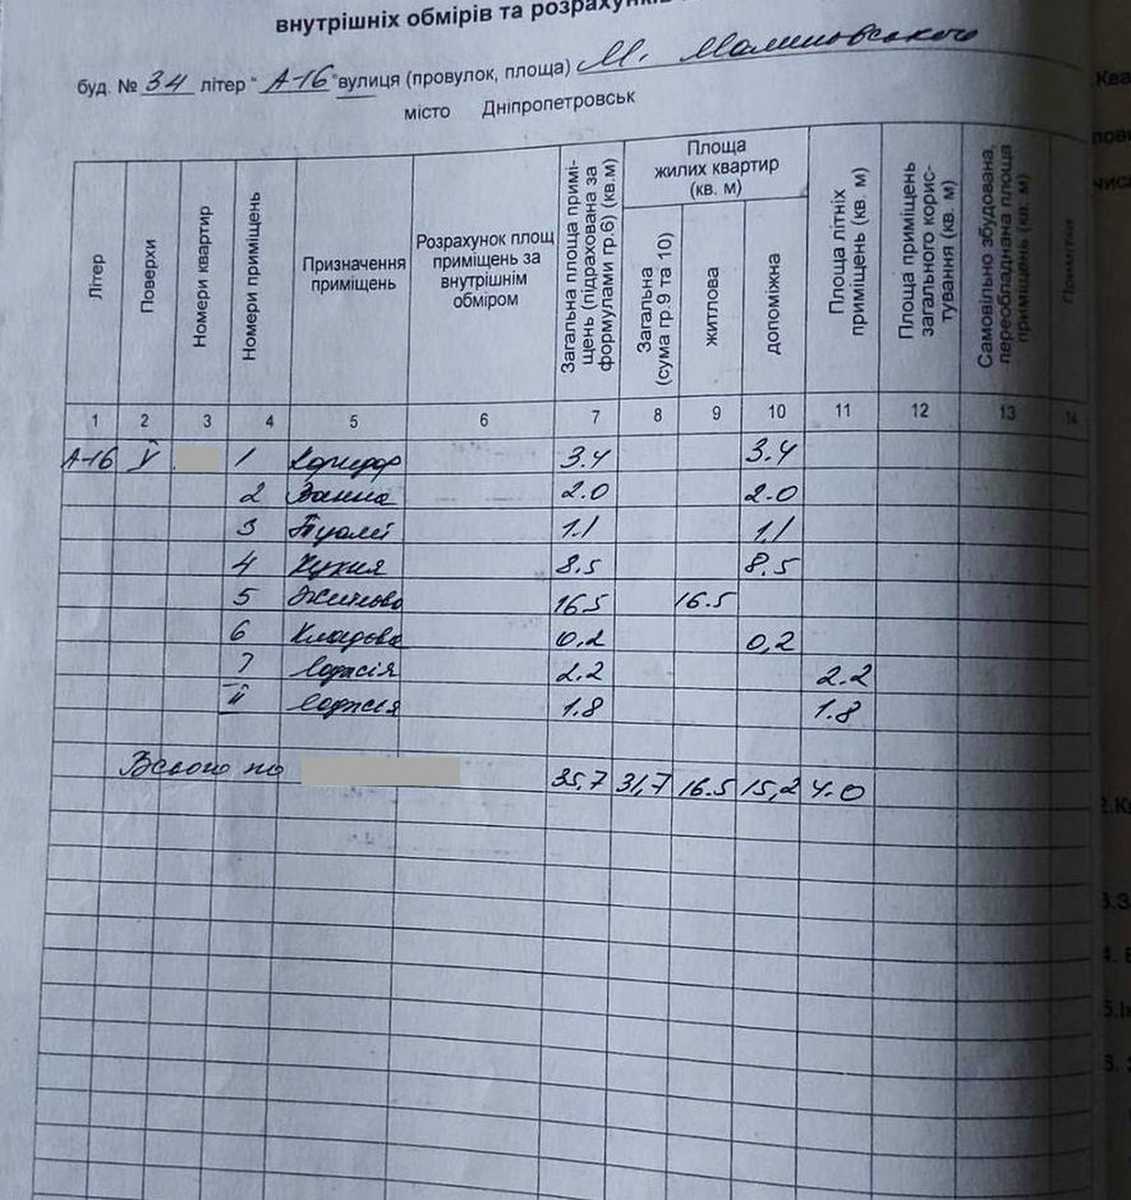 внутрішніх обмірів та розрахунків
буд. № 34 літер " А-16 " вулиця (провулок, площа) М. Малиновського
місто Дніпропетровськ
Літер
Поверхи
Номери квартир
Номери приміщень
Призначення приміщень
Розрахунок площ приміщень за внутрішнім обміром
Загальна площа приміщень (підрахована за формулами гр.6) (кв.м)
Площа жилих квартир (кв. м)
Загальна (сума гр.9 та 10)
житлова
допоміжна
Площа літніх приміщень (кв. м)
Площа приміщень загального користування (кв. м)
Самовільно збудована, переобладнана площа приміщень (кв. м)
Примітки
1 2 3 4 5 6 7 8 9 10 11 12 13 14
А-16 V 1 Коридор 3.4 3.4
2 Ванна 2.0 2.0
3 Туалет 1.1 1.1
4 Кухня 8.5 8.5
5 Житлова 16.5 16.5
6 Кладова 0.2 0,2
7 Лоджія 2.2 2.2
II Лоджія 1.8 1.8
Всього по 35,7 31,7 16.5 15,2 4.0